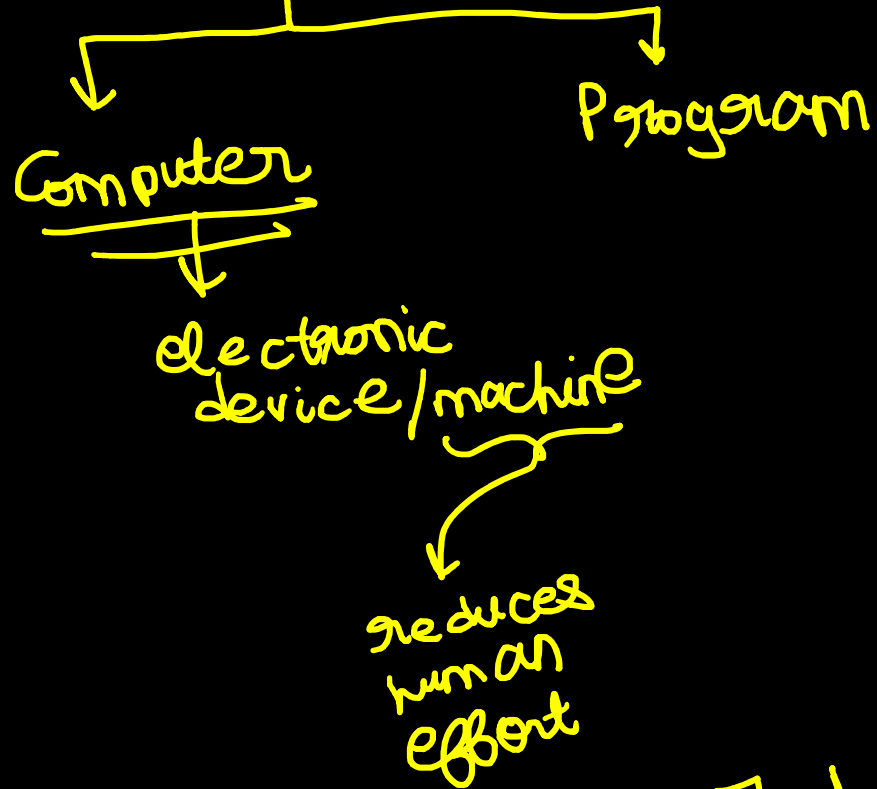 Computer
Program
electronic
device/machine
reduces
human
effort